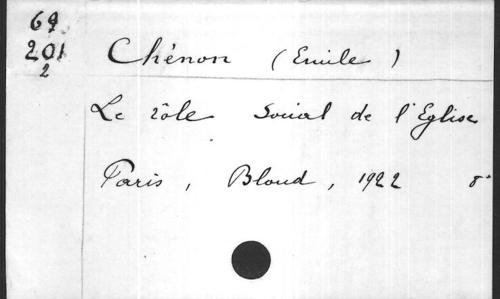 69
201
2
Chénon (Emile)
Le rôle social de l'Eglise
Paris, Bloud, 1922 8°